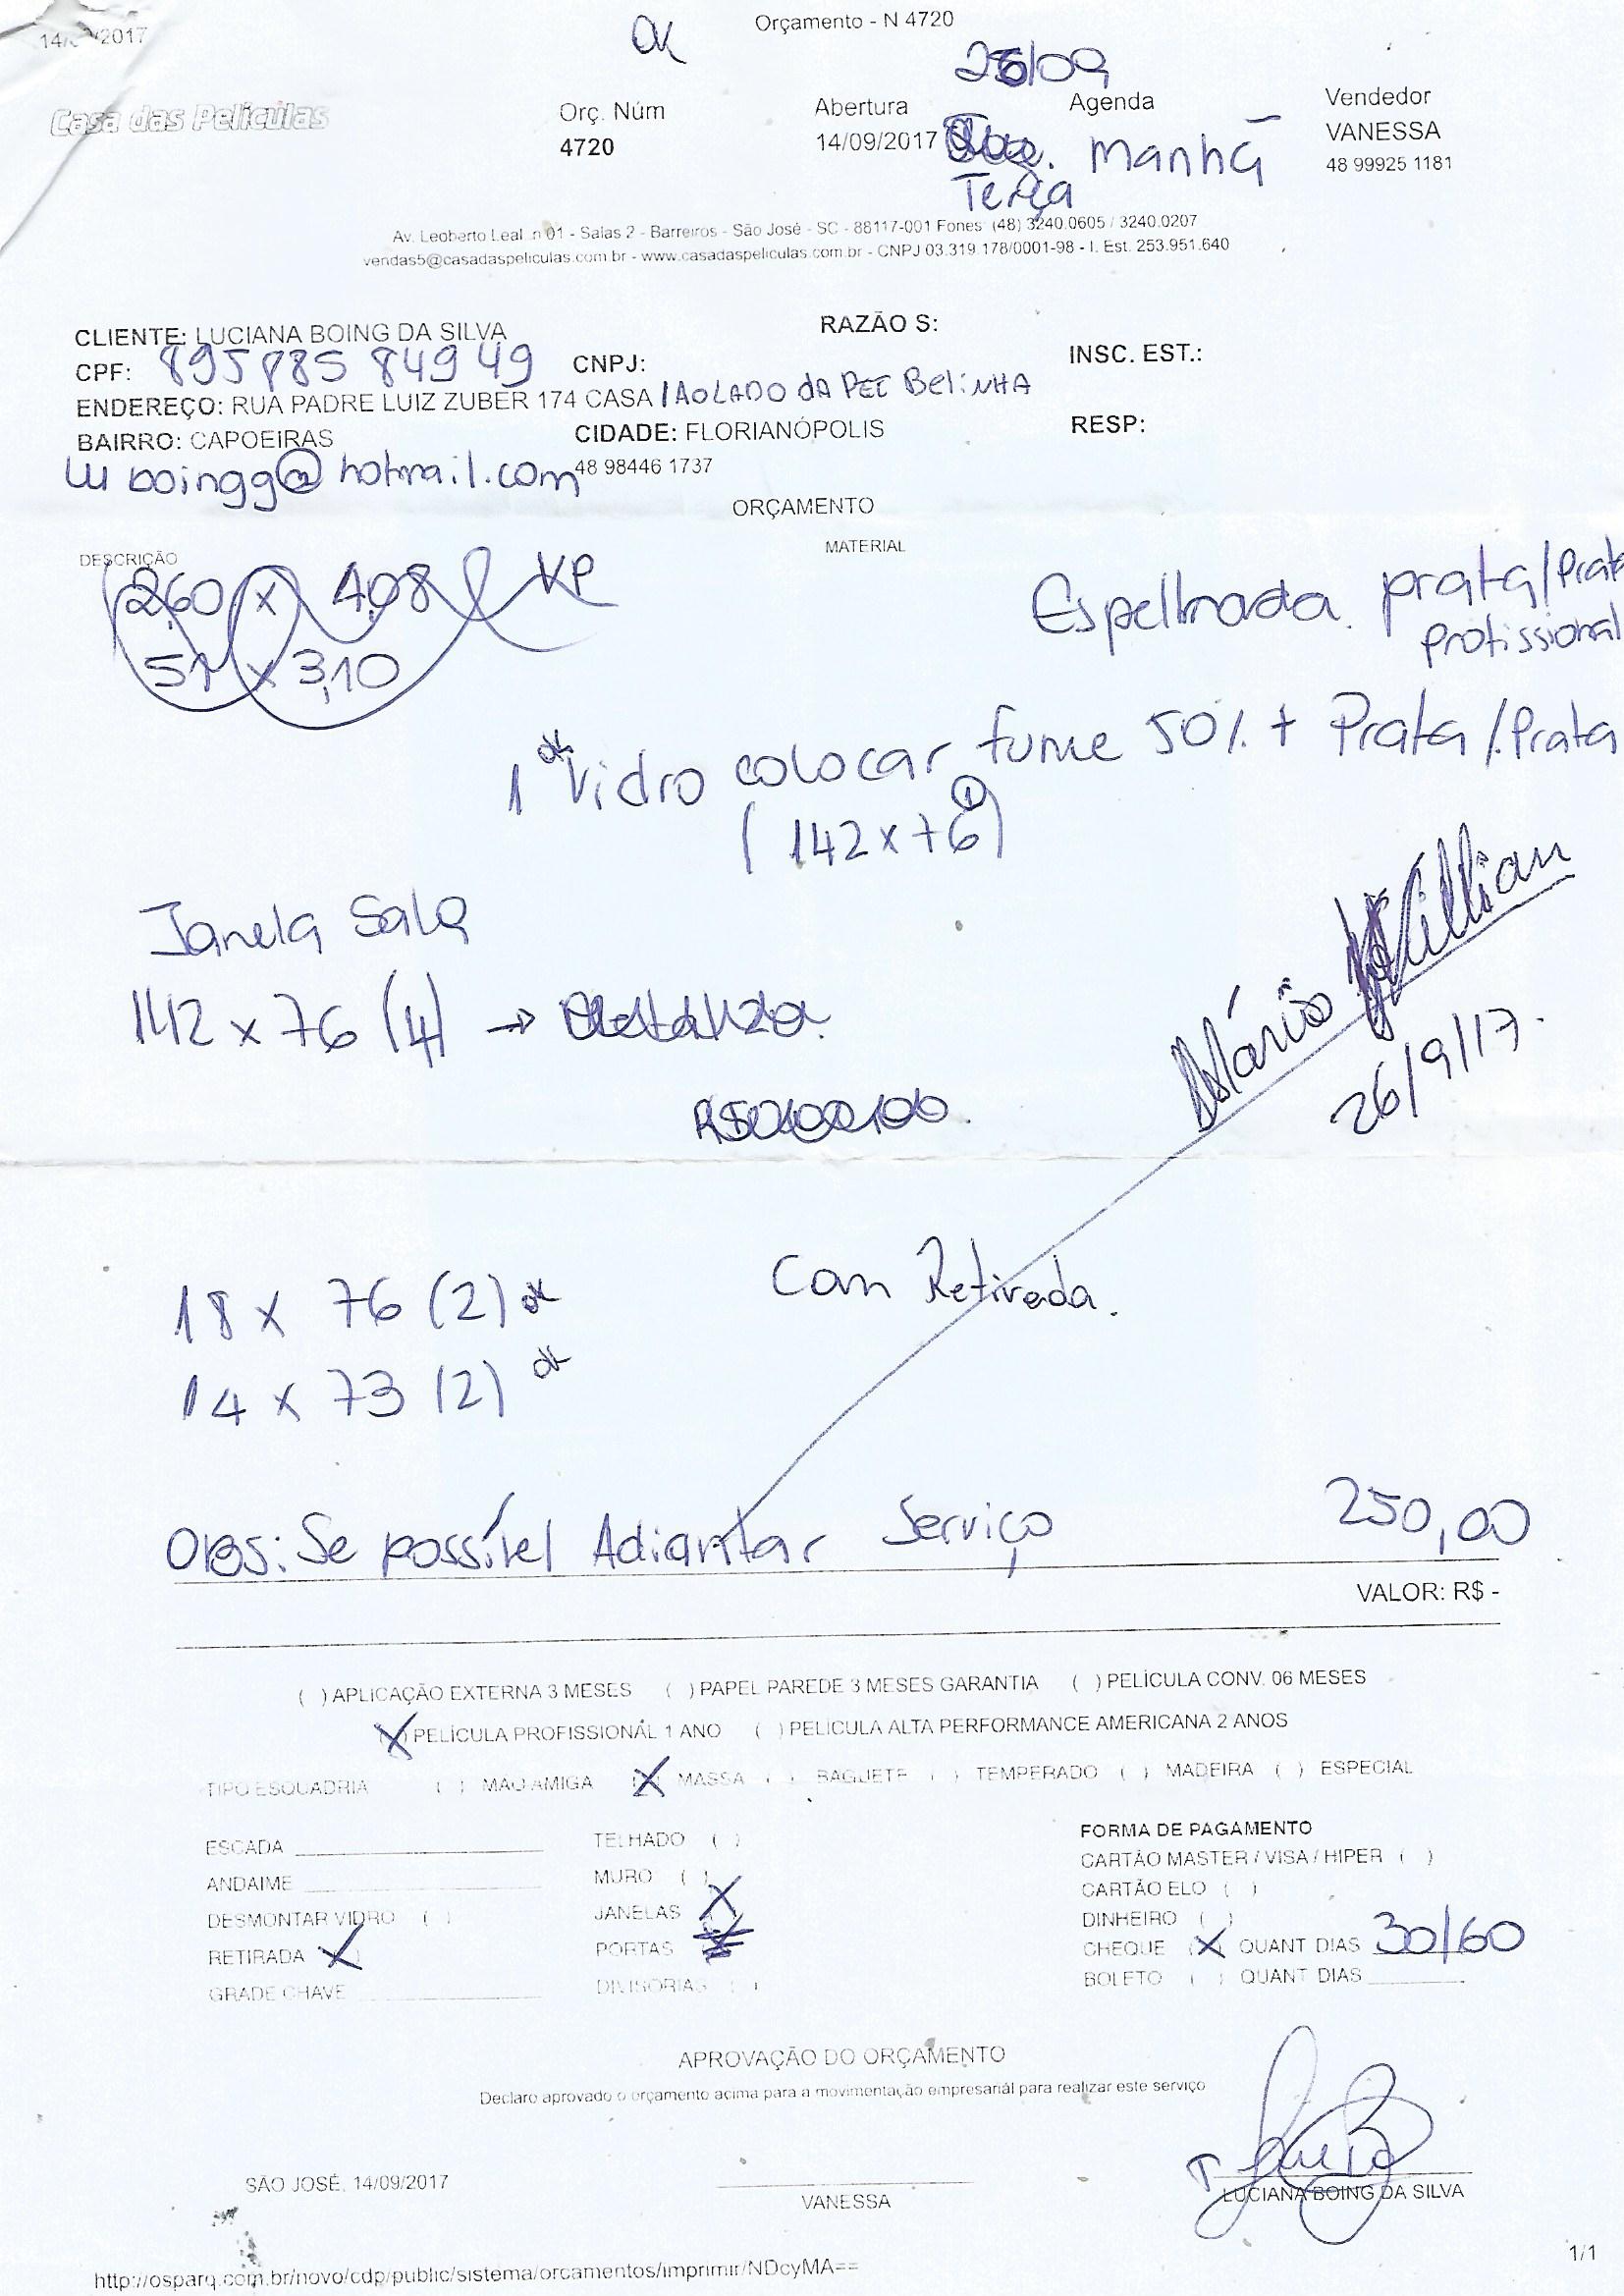 14/ /2017
Orçamento - N 4720
OK
26/09
Casa das Películas
Orç. Núm
4720
Abertura
14/09/2017
Agenda
Manhã
Terça
Vendedor
VANESSA
48 99925 1181
Av. Leoberto Leal .n 01 - Salas 2 - Barreiros - São José - SC - 88117-001 Fones: (48) 3240.0605 / 3240.0207
vendas5@casadaspeliculas.com.br - www.casadaspeliculas.com.br - CNPJ 03.319.178/0001-98 - I. Est. 253.951.640
CLIENTE: LUCIANA BOING DA SILVA RAZÃO S:
CPF: 895 885 849 49 CNPJ: INSC. EST.:
ENDEREÇO: RUA PADRE LUIZ ZUBER 174 CASA / AO LADO dA PET BeliNHA
BAIRRO: CAPOEIRAS CIDADE: FLORIANÓPOLIS RESP:
lu boingg@hotmail.com 48 98446 1737
ORÇAMENTO
DESCRIÇÃO MATERIAL
2,60 x 4,08 VP
51 x 3,10
Espelhada. prata/Prata
profissional
1 ok Vidro colocar fume 50% + Prata/Prata
(142 x 76) 1
Janela Sala
142 x 76 (4) →
Mário Willian
26/9/17.
18 x 76 (2) ok
Com Retirada.
14 x 73 (2) ok
OBS: Se possível Adiantar Serviço 250,00
VALOR: R$ -
( ) APLICAÇÃO EXTERNA 3 MESES ( ) PAPEL PAREDE 3 MESES GARANTIA ( ) PELÍCULA CONV. 06 MESES
(X) PELÍCULA PROFISSIONAL 1 ANO ( ) PELÍCULA ALTA PERFORMANCE AMERICANA 2 ANOS
TIPO ESQUADRIA ( ) MAO AMIGA (X) MASSA ( ) BAGUETE ( ) TEMPERADO ( ) MADEIRA ( ) ESPECIAL
ESCADA
ANDAIME
DESMONTAR VIDRO ( )
RETIRADA (X)
GRADE CHAVE
TELHADO ( )
MURO ( )
JANELAS (X)
PORTAS
DIVISORIAS ( )
FORMA DE PAGAMENTO
CARTÃO MASTER / VISA / HIPER ( )
CARTÃO ELO ( )
DINHEIRO ( )
CHEQUE (X) QUANT DIAS 30/60
BOLETO ( ) QUANT DIAS
APROVAÇÃO DO ORÇAMENTO
Declaro aprovado o orçamento acima para a movimentação empresarial para realizar este serviço
SÃO JOSÉ, 14/09/2017
VANESSA
LUCIANA BOING DA SILVA
1/1
http://osparq.com.br/novo/cdp/public/sistema/orcamentos/imprimir/NDcyMA==